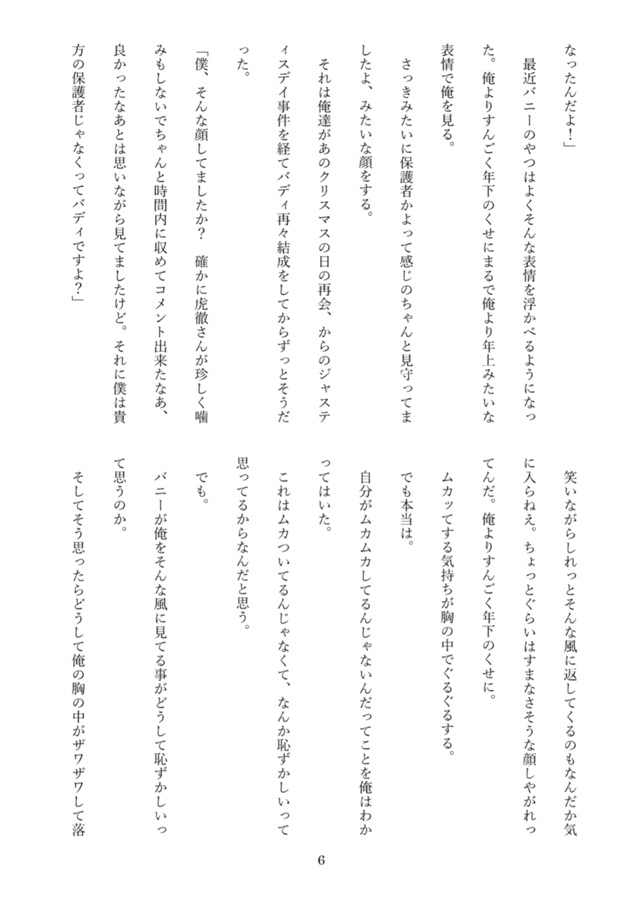 なったんだよ！」
　最近バニーのやつはよくそんな表情を浮かべるようになっ
た。俺よりすんごく年下のくせにまるで俺より年上みたいな
表情で俺を見る。
　さっきみたいに保護者かよって感じのちゃんと見守ってま
したよ、みたいな顔をする。
　それは俺達があのクリスマスの日の再会、からのジャステ
ィスデイ事件を経てバディ再々結成をしてからずっとそうだ
った。
「僕、そんな顔してましたか？　確かに虎徹さんが珍しく噛
みもしないでちゃんと時間内に収めてコメント出来たなあ、
良かったなあとは思いながら見てましたけど。それに僕は貴
方の保護者じゃなくってバディですよ？」
　笑いながらしれっとそんな風に返してくるのもなんだか気
に入らねえ。ちょっとぐらいはすまなさそうな顔しやがれっ
てんだ。俺よりすんごく年下のくせに。
　ムカッてする気持ちが胸の中でぐるぐるする。
　でも本当は。
　自分がムカムカしてるんじゃないんだってことを俺はわか
ってはいた。
　これはムカついてるんじゃなくて、なんか恥ずかしいって
思ってるからなんだと思う。
　でも。
　バニーが俺をそんな風に見てる事がどうして恥ずかしいっ
て思うのか。
　そしてそう思ったらどうして俺の胸の中がザワザワして落
6